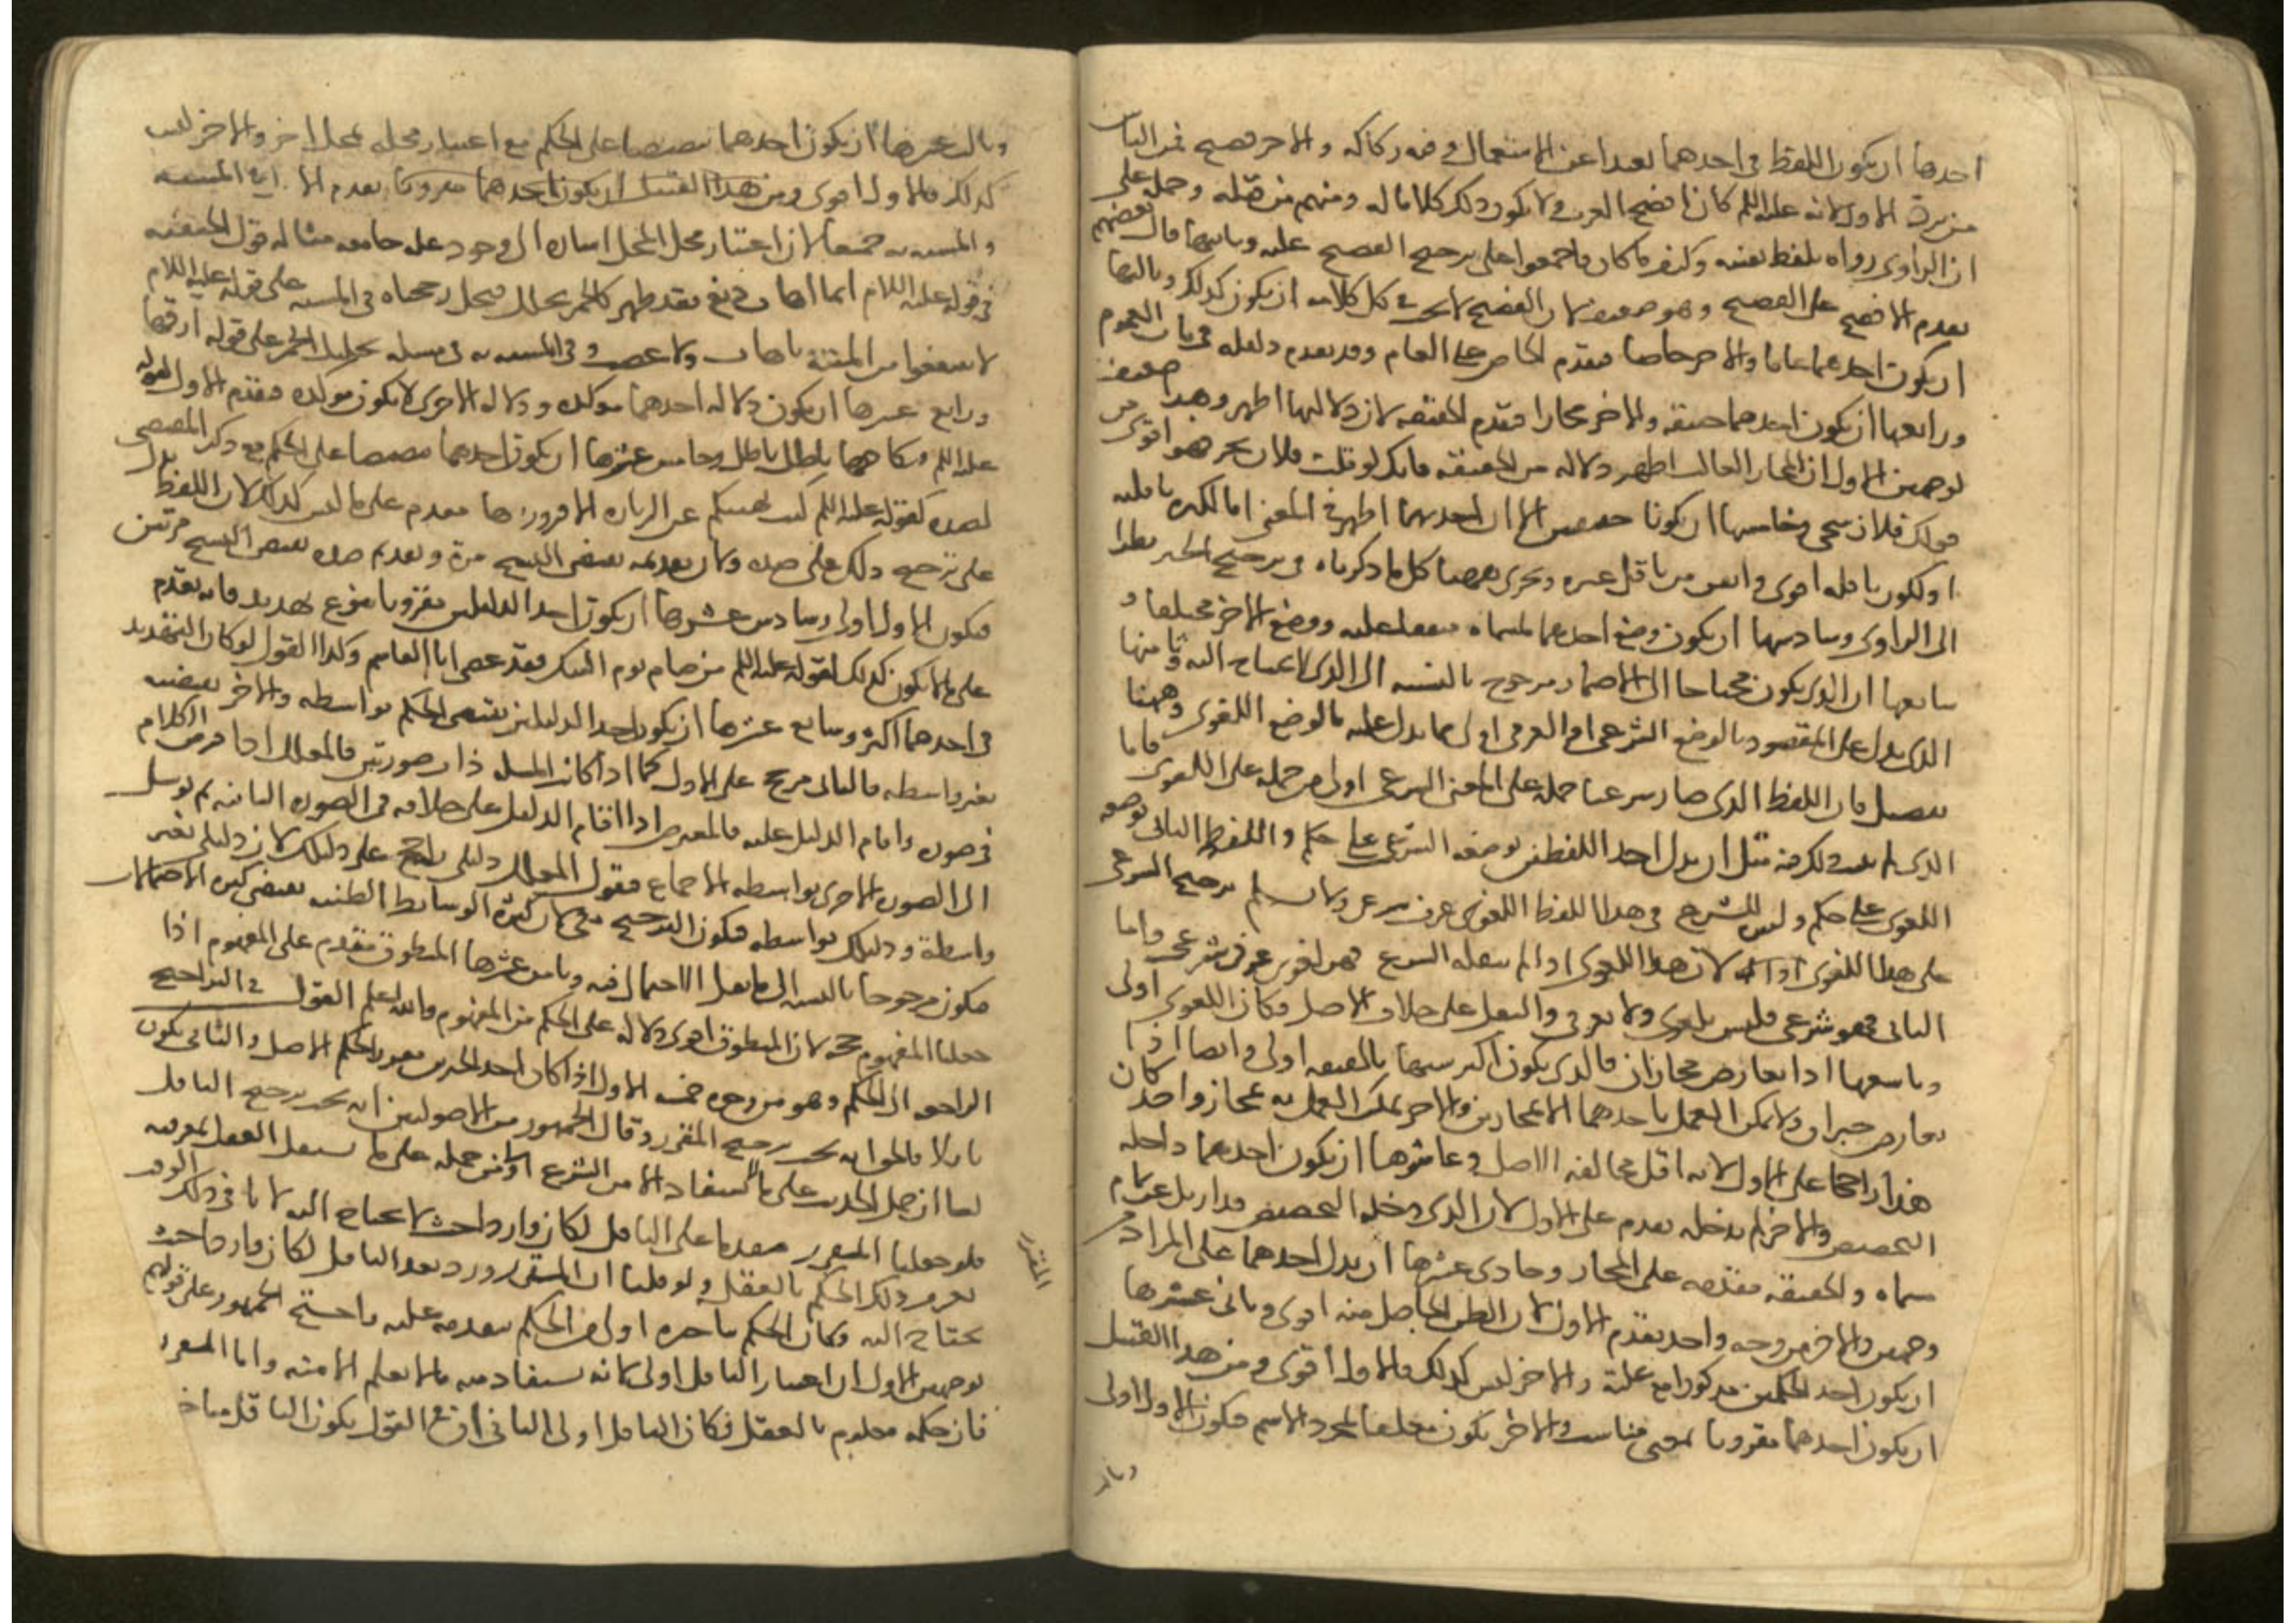 احدها ان يكون اللفظ في احدهما بعيدا عن الاستعمال وفيه ركاكه والاخر فصيح فمن الناس
من يرد الاول لانه عليه السلم كان افصح العرب ولا يكون ذلك كلاما له ومنهم من قبله وحمله على
ان الراوي رواه بلفظ نفسه وكيف ما كان فاجمعوا على ترجيح الفصيح عليه وثانيها قال بعضهم
يقدم الافصح على الفصيح وهو ضعيف لان الفصيح لا يجب في كل كلامه ان يكون كذلك وثالثها
ان يكون احدهما عاما والاخر خاصا فيقدم الخاص على العام وقد تقدم دليله في باب العموم
ورابعها ان يكون احدهما حقيقه والاخر مجازا فيقدم الحقيقه لان دلالتها اظهر وهذا ضعيف
لوجهين الاول ان المجاز الغالب اظهر دلاله من الحقيقه فانك لو قلت فلان بحر فهو اقوى من
قولك فلان سخي وخامسها ان يكونا حقيقتين الا ان احدهما اظهر في المعنى اما لكثره ناقليه
او لكون ناقله اقوى واتقن من ناقل غيره ويجري ههنا كل ما ذكرناه في ترجيح الخبر نظرا
الى الراوي وسادسها ان يكون وضع احدهما لمسماه متفقا عليه ووضع الاخر مختلفا و
سابعها ان الذي يكون محتاجا الى الاضمار مرجوح بالنسبه الى الذي لا يحتاج اليه وثامنها
الذي يدل على المقصود بالوضع الشرعي او العرفي اولى مما يدل عليه بالوضع اللغوي وههنا
تفصيل فان اللفظ الذي صار شرعيا حمله على المعنى الشرعي اولى من حمله على اللغوي فاما
الذي لم يثبت ذلك فيه مثل ان يدل احد اللفظين بوضعه الشرعي على حكم واللفظ الثاني بوضعه
اللغوي على حكم وليس للشرع في هذا اللفظ اللغوي عرف شرعي ولا نسلم ترجيح الشرعي
على هذا اللغوي لان هذا اللغوي اذا لم ينقله الشرع فهو لغوي عرفي شرعي واما
الثاني فهو شرعي فليس بلغوي ولا عرفي والنقل على خلاف الاصل فكان اللغوي اولى
وتاسعها اذا تعارض مجازان فالذي يكون اكثر شبها بالحقيقه اولى وايضا اذا
تعارض خبران ولا يمكن العمل باحدهما الا بمجازين والاخر يمكن العمل به بمجاز واحد كان
هذا راجحا على الاول لانه اقل مخالفه للاصل وعاشرها ان يكون احدهما داخله
التخصيص والاخر لم يدخله يقدم على الاول لان الذي دخله التخصيص قد ازيل عن تمام
مسماه والحقيقه مقدمه على المجاز وحادي عشرها ان يدل احدهما على المراد من
وجهين والاخر من وجه واحد يقدم الاول لان الظن الحاصل منه اقوى وثاني عشرها
ان يكون احد الحكمين مذكورا مع علته والاخر ليس كذلك فالاول اقوى ومن هذا القبيل
ان يكون احدهما مقرونا بمعنى مناسب والاخر يكون معلقا بمجرد الاسم فيكون الاول اولى
وثالث
وثالث عشرها ان يكون احدهما تنصيصا على الحكم مع اعتبار محله بمحل اخر والاخر ليس
كذلك فالاول اقوى ومن هذا القبيل ان يكون احدهما مقرونا يقدم المشبه
والمشبه به جميعا لان اعتبار محل المحل اشاره الى وجود عله جامعه مثاله قول الحنفيه
في قوله عليه السلام ايما اهاب دبغ فقد طهر كالخمر يخلل فيحل رجحناه في المشبه على قوله عليه السلام
لا تنتفعوا من الميتة باهاب ولا عصب وفي المشبه به في مسله تخليل الخمر على قوله ارقها
ورابع عشرها ان يكون دلاله احدهما موكده ودلاله الاخرى لا يكون موكده فيقدم الاول كقوله
عليه السلم فنكاحها باطل باطل وخامس عشرها ان يكون احدهما تنصيصا على الحكم مع ذكر المقتضي
لضده كقوله عليه السلم كنت نهيتكم عن زياره الا فزوروها مقدم على ما ليس كذلك لان اللفظ يدل
على ترجيح ذلك على ضده ولان تقديمه يقتضي النسخ مرة وتقديم ضده يقتضي النسخ مرتين
فيكون الاول اولى وسادس عشرها ان يكون احد الدليلين مقرونا بنوع تهديد فانه يقدم
على ما لا يكون كذلك كقوله عليه السلم من صام يوم الشك فقد عصى ابا القاسم وكذا القول لو كان التهديد
في احدهما اكثر وسابع عشرها ان يكون احد الدليلين يقتضي الحكم بواسطه والاخر يقتضيه
بغير واسطه فالثاني مرجح على الاول كما اذا كانت المسله ذات صورتين فالمعلل اذا فرض الكلام
في صوره واقام الدليل عليه فالمعترض اذا اقام الدليل على خلافه في الصوره الثانيه ثم توسل
الى الصوره الاخرى بواسطه الاجماع فيقول المعلل دليلي راجح على دليلك لان دليلي بغير
واسطة ودليلك بواسطه فيكون الترجيح معي لان كثره الوسايط الظنيه يقتضي كثره الاحتمالات
فيكون مرجوحا بالنسبه الى ما يقل الاحتمال فيه وثامن عشرها المنطوق مقدم على المفهوم اذا
جعلنا المفهوم حجه لان المنطوق اقوى دلاله على الحكم من المفهوم والله اعلم القول في التراجيح
الراجعه الى الحكم وهو من وجوه خمسه الاول اذا كان احد الخبرين مقررا لحكم الاصل والثاني يكون
ناقلا فالحق انه يجب ترجيح المقرر وقال الجمهور من الاصوليين انه يجب ترجيح الناقل
لنا ان حمل الحديث على ما لا يستفاد الا من الشرع اولى من حمله على ما يستقل العقل بمعرفته
فلو جعلنا المقرر مقدما على الناقل لكان واردا حيث لا يحتاج اليه لانا في ذلك الوقت
نعرف ذلك الحكم بالعقل ولو قلنا ان المقرر ورد بعد الناقل لكان واردا حيث
يحتاج اليه فكان الحكم بتاخره اولى من الحكم بتقدمه عليه واحتج الجمهور على قولهم
بوجهين الاول ان اعتبار الناقل اولى لانه يستفاد منه ما لا يعلم الا منه واما المقرر
فان حكمه معلوم بالعقل فكان الناقل اولى الثاني ان في القول بكون الناقل متاخرا
المقرر